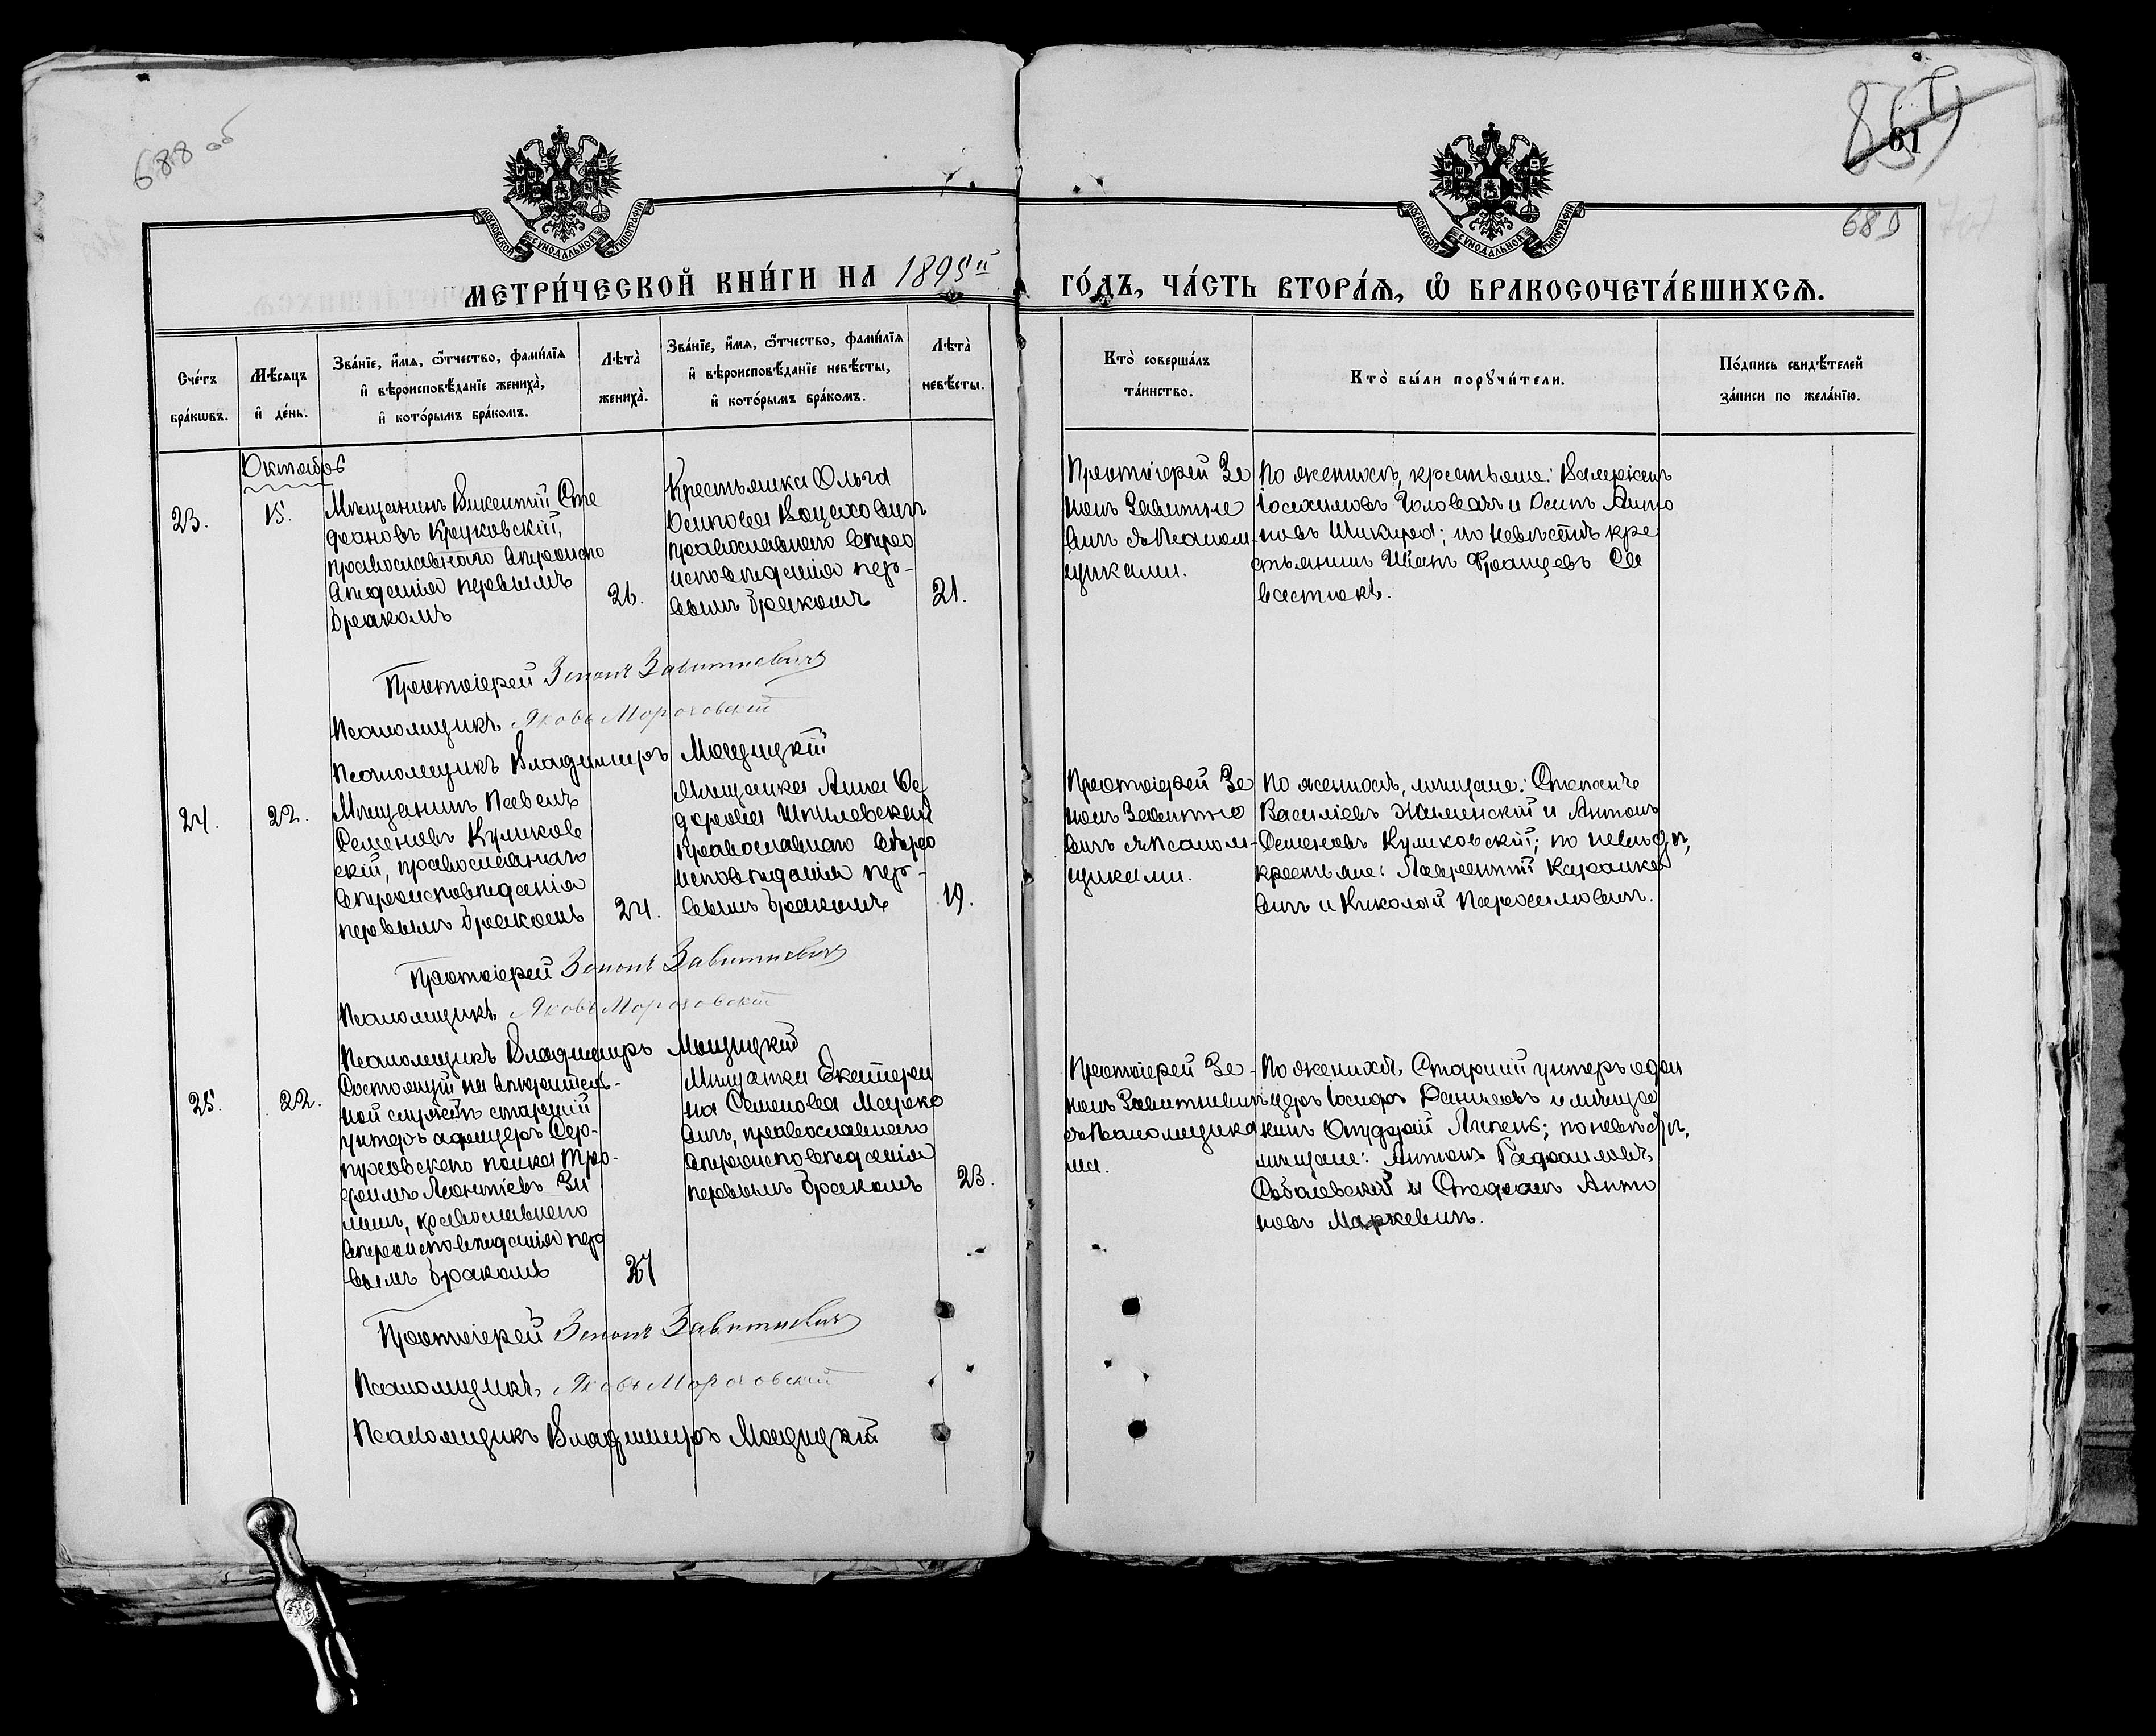 688 об
61
689
МОСКОВСКОЙ СѴНОДАЛЬНОЙ ТИПОГРАФИИ
МОСКОВСКОЙ СѴНОДАЛЬНОЙ ТИПОГРАФИИ
МЕТРИ́ЧЕСКОЙ КНИ́ГИ НА 1895й ГО́ДЪ, ЧА́СТЬ ВТОРА́Ѧ, Ѽ БРАКОСОЧЕТА́ВШИХСѦ.
Сче́тъ бра́кѡвъ.
Мѣ́сяцъ и҆ де́нь.
Зва́нїе, и҆́мя, ѻ҆́тчество, фами́лїя и҆ вѣроисповѣ́данїе жениха̀, и҆ кото́рымъ бра́комъ.
Лѣта̀ жениха̀.
Зва́нїе, и҆́мя, ѻ҆́тчество, фами́лїя и҆ вѣроисповѣ́данїе невѣ́сты, и҆ кото́рымъ бра́комъ.
Лѣта̀ невѣ́сты.
Кто̀ соверша́лъ та́инство.
Кто̀ бы́ли порꙋчи́тели.
По́дпись свидѣ́телей за́писи по жела́нїю.
Октябрь
23.
15.
Мѣщанинъ Викентій Сте
фановъ Круковскій,
православнаго вѣроиспо
вѣданія первымъ
бракомъ
26.
Крестьянка Ольга
Осипова Войцеховичъ
православнаго вѣро
исповѣданія пер-
вымъ бракомъ
21.
Протоіерей Зе
нонъ Завитне
вичъ съ Псалом-
щиками.
По женихѣ, крестьяне: Валеріанъ
Іоакимовъ Головачъ и Осипъ Анто
новъ Шикура; по невѣстѣ кре
стьянинъ Иванъ Францевъ Са
вастюкъ.
Протоіерей Зенонъ Завитневичъ
Псаломщикъ Яковъ Мороховскій
Псаломщикъ Владимиръ Мощицкій
24.
22.
Мѣщанинъ Павелъ
Семеновъ Куликов
скій, православнаго
вѣроисповѣданія
первымъ бракомъ
24.
Мѣщанка Анна Ѳе
дорова Шпилевская
православнаго вѣро
исповѣданія пер-
вымъ бракомъ
19.
Протоіерей Зе
нонъ Завитне
вичъ съ Псалом-
щиками.
По женихѣ, мѣщане: Степанъ
Василіевъ Жилинскій и Антонъ
Семеновъ Куликовскій; по невѣстѣ,
крестьяне: Лаврентій Каранке
вичъ и Николай
Протоіерей Зенонъ Завитневичъ
Псаломщикъ Яковъ Мороховскій
Псаломщикъ Владимиръ Мощицкій
25.
22.
Состоящій на дѣйствитель-
ной службѣ старшій
унтеръ офицеръ Сер-
пуховскаго полка Тро-
фимъ Леонтіевъ Зи
минъ, православнаго
вѣроисповѣданія пер
вымъ бракомъ
27
Мѣщанка Екатери
на Семенова Марке
вичъ, православнаго
вѣроисповѣданія
первымъ бракомъ
23.
Протоіерей Зе-
нонъ Завитневичъ
съ Псаломщика
ми.
По женихѣ, Старшій унтеръ офи
церъ Іосифъ Даниловъ и мѣща
нинъ Онуфрій Липень; по невѣстѣ,
мѣщане: Антонъ
и Стефанъ Анто
новъ Маркевичъ.
Протоіерей Зенонъ Завитневичъ
Псаломщикъ Яковъ Мороховскій
Псаломщикъ Владимиръ Мощицкій